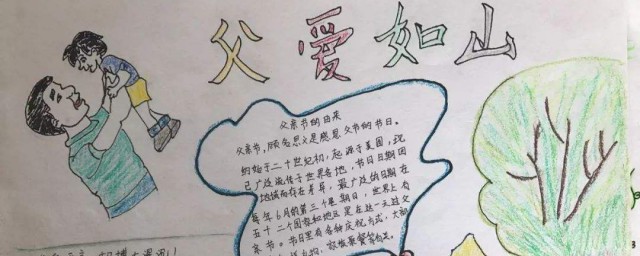 父爱如山
父亲节的由来
父亲节,顾名思义是感恩父亲的节日。
约始于二十世纪初,起源于美国,现
已广泛流传于世界各地,节日日期因
地域而存在差异。最广泛的日期在
每年6月的第三个星期日,世界上有
五十二个国家和地区是在这一天过父
亲节。节日里有各种庆祝方式,大部